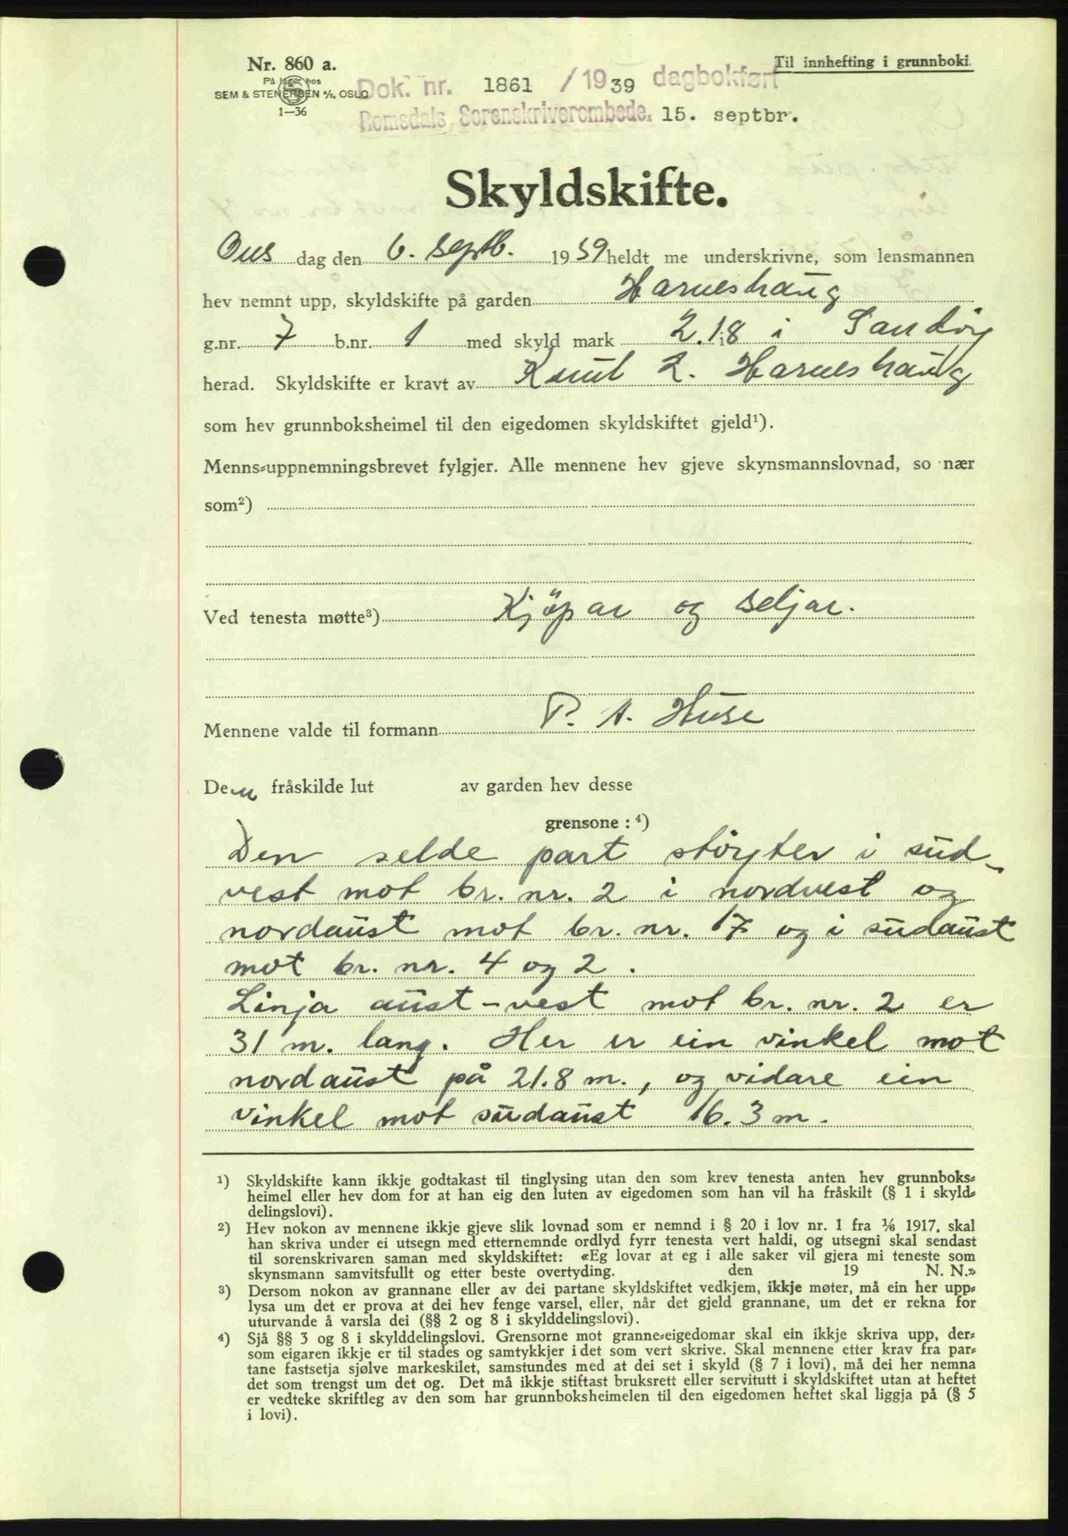 Nr. 860 a.
På lager hos
SEM & STENERSEN A/S, OSLO
1—36
Til innhefting i grunnboki
Dok. nr. 1861 / 1939 dagbokført
Romsdals Sorenskriverembede. 15. septbr.
Skyldskifte.
Ons dag den 6. septb. 1939 heldt me underskrivne, som lensmannen
hev nemnt upp, skyldskifte på garden Harneshaug
g.nr. 7 b.nr. 1 med skyld mark 2.18 i Sandøy
herad. Skyldskifte er kravt av Knut L. Harneshaug
som hev grunnboksheimel til den eigedomen skyldskiftet gjeld¹).
Menns-uppnemningsbrevet fylgjer. Alle mennene hev gjeve skynsmannslovnad, so nær
som²)
Ved tenesta møtte³) Kjøpar og seljar.
Mennene valde til formann P. A. Huse
Den fråskilde lut av garden hev desse
grensone : ⁴)
Den selde part støyter i sud-
vest mot br. nr. 2 i nordvest og
nordaust mot br. nr. 17 og i sudaust
mot br. nr. 4 og 2.
Linja aust-vest mot br. nr. 2 er
31 m. lang. Her er ein vinkel mot
nordaust på 21.8 m., og vidare ein
vinkel mot sudaust 16.3 m.
¹) Skyldskifte kann ikkje godtakast til tinglysing utan den som krev tenesta anten hev grunnboks-
heimel eller hev dom for at han eig den luten av eigedomen som han vil ha fråskilt (§ 1 i skyld-
delingslovi).
²) Hev nokon av mennene ikkje gjeve slik lovnad som er nemnd i § 20 i lov nr. 1 fra 1/6 1917, skal
han skriva under ei utsegn med etternemnde ordlyd fyrr tenesta vert haldi, og utsegni skal sendast
til sorenskrivaren saman med skyldskiftet: «Eg lovar at eg i alle saker vil gjera mi teneste som
skynsmann samvitsfullt og etter beste overtyding. den 19 N. N.»
³) Dersom nokon av grannane eller av dei partane skyldskiftet vedkjem, ikkje møter, må ein her upp-
lysa um det er prova at dei hev fenge varsel, eller, når det gjeld grannane, um det er rekna for
uturvande å varsla dei (§§ 2 og 8 i skylddelingslovi).
⁴) Sjå §§ 3 og 8 i skylddelingslovi. Grensorne mot granne-eigedomar skal ein ikkje skriva upp, der-
som eigaren ikkje er til stades og samtykkjer i det som vert skrive. Skal mennene etter krav fra par-
tane fastsetja sjølve markeskilet, samstundes med at dei set i skyld (§ 7 i lovi), må dei her nemna
det som trengst um det og. Det må ikkje stiftast bruksrett eller servitutt i skyldskiftet utan at heftet
er vedteke skriftleg av den som har grunnboksheimelen til den eigedomen heftet skal liggja på (§ 5
i lovi).